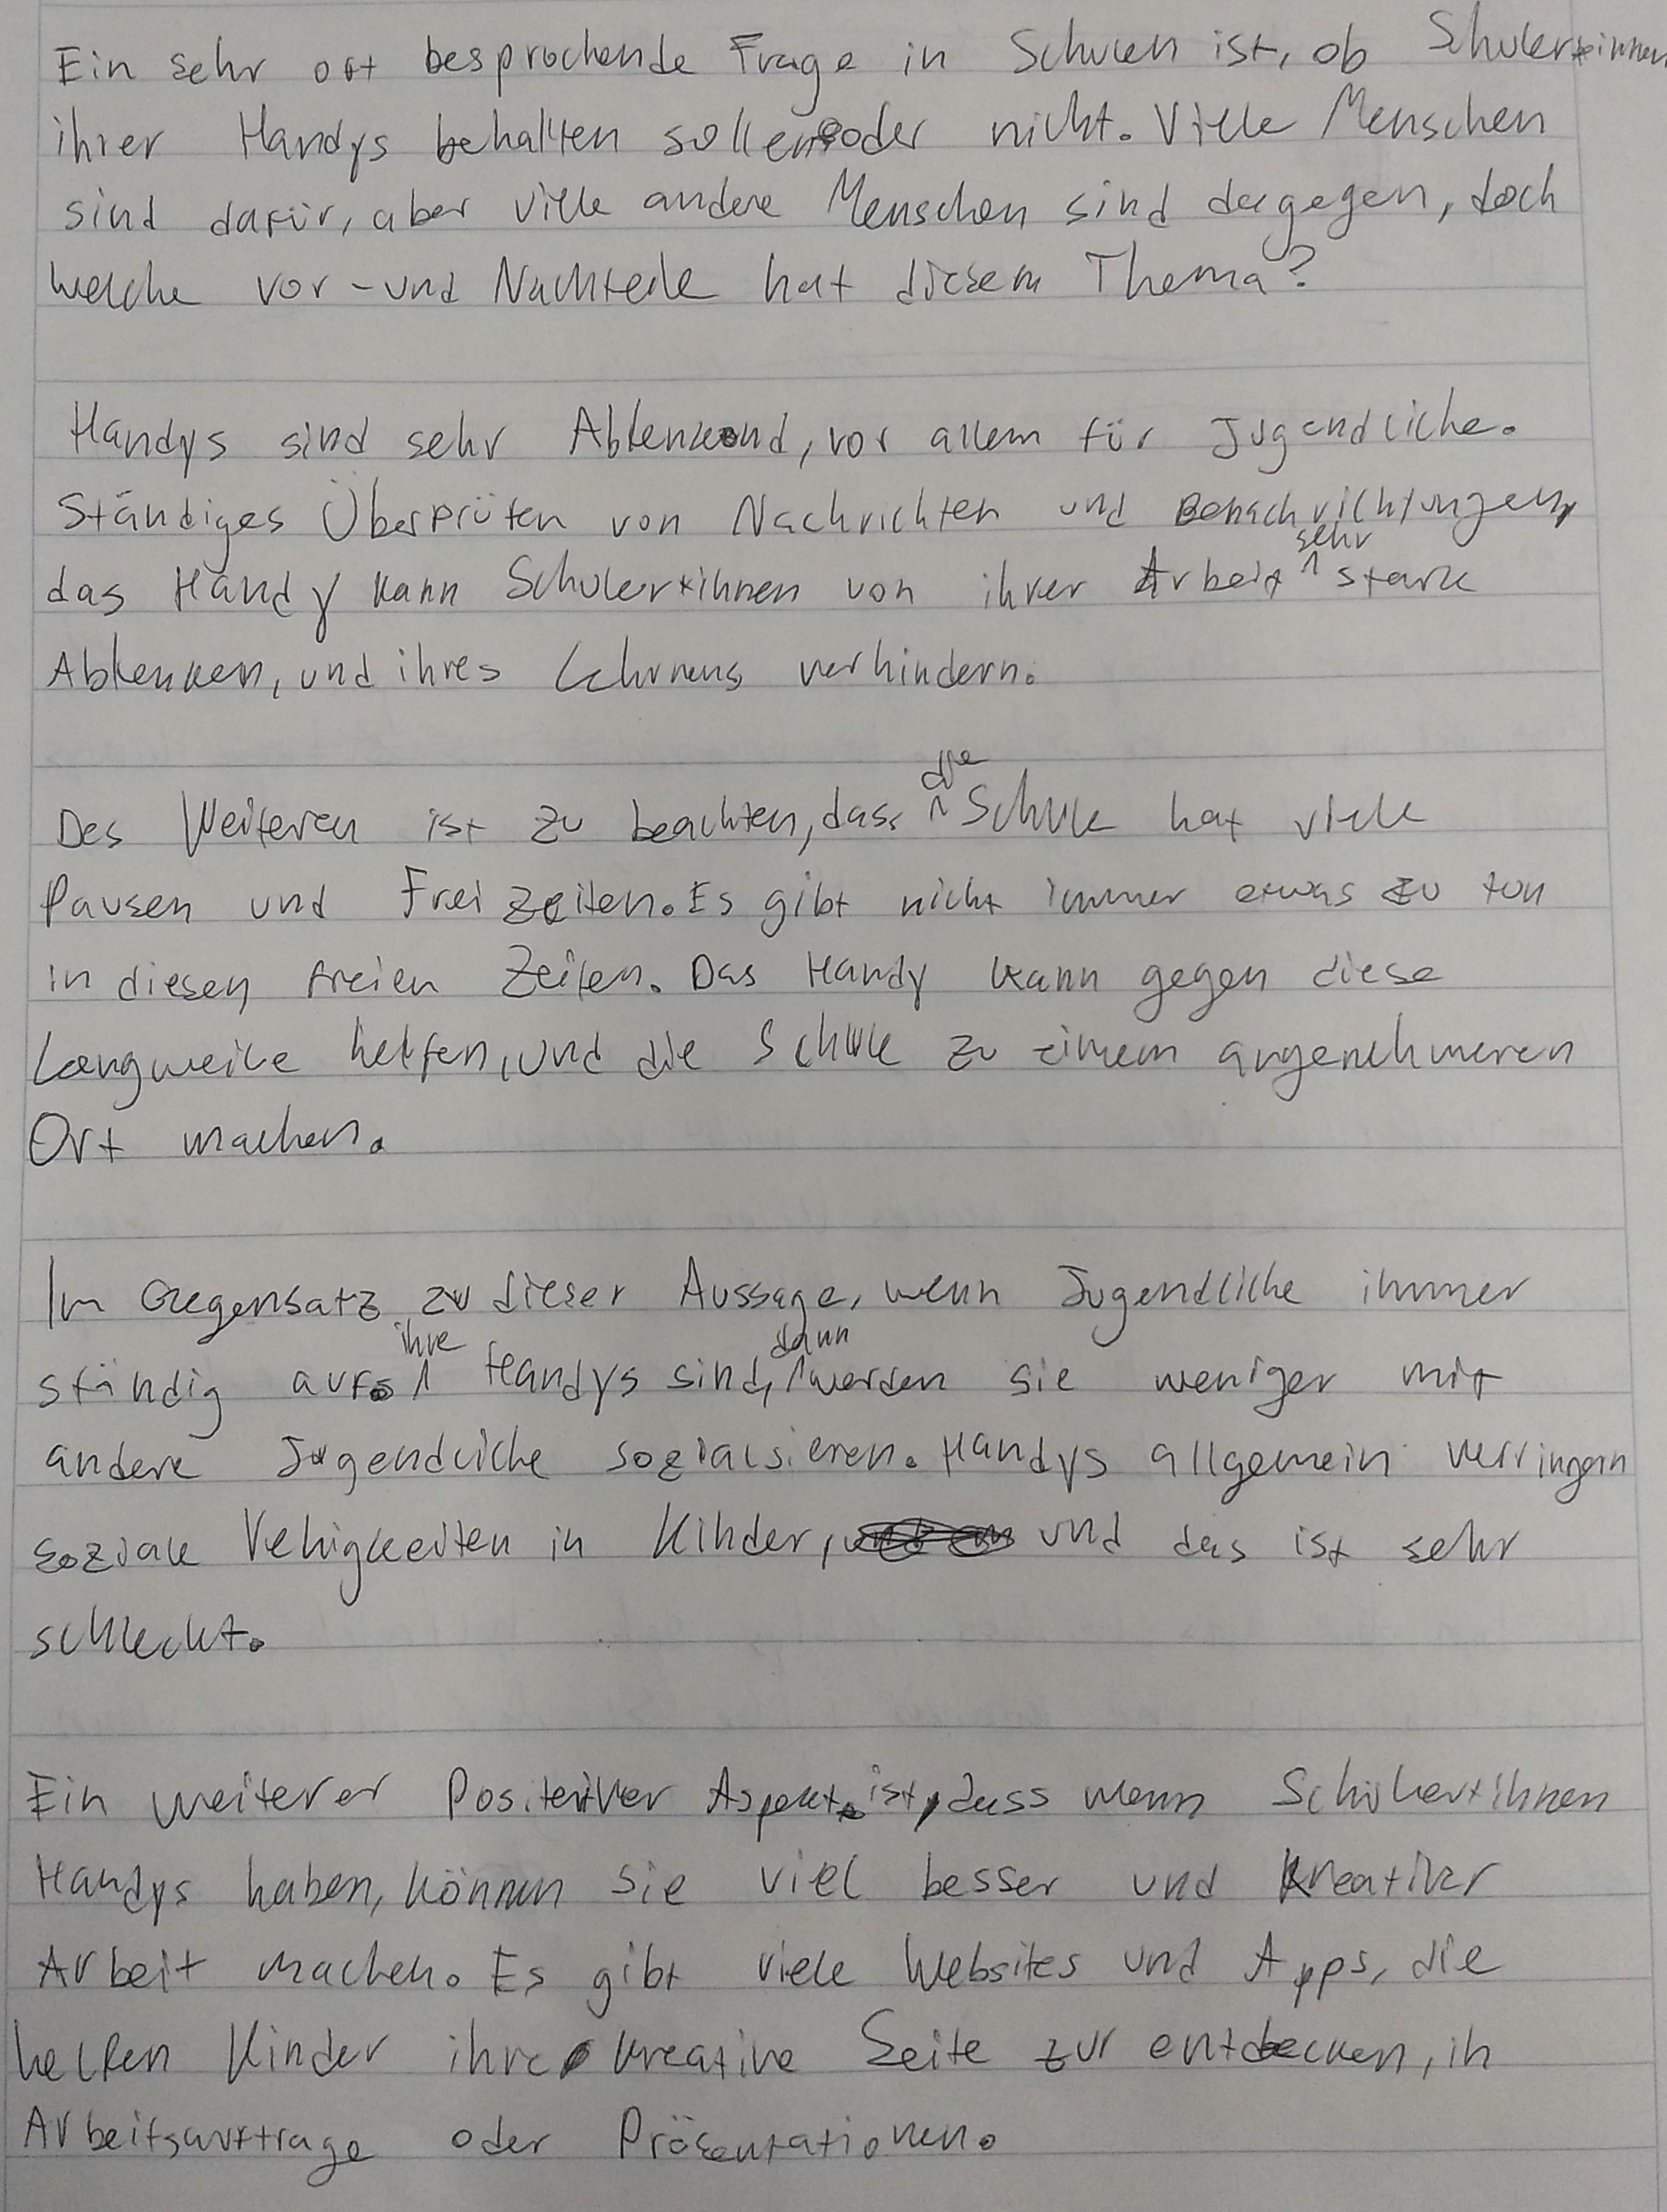 Ein sehr oft besprochende Frage in Schulen ist, ob Schuler*innen
ihrer Handys behalten sollen oder nicht. Viele Menschen
sind dafür, aber viele andere Menschen sind dagegen, doch
welche vor-und Nachteile hat diesem Thema?
Handys sind sehr Ablenkend, vor allem für Jugendliche.
Ständiges Überprüfen von Nachrichten und Benachrichtungen,
das Handy kann Schuler*innen von ihrer Arbeit sehr stark
Ablenken, und ihres Lehrnens verhindern.
Des Weiteren ist zu beachten, dass die Schule hat viele
Pausen und Frei zeiten. Es gibt nicht immer etwas zu tun
in diesen freien Zeiten. Das Handy kann gegen diese
Langweile helfen, und die Schule zu einem angenehmeren
Ort machen.
Im Gegensatz zu dieser Aussage, wenn Jugendliche immer
ständig auf ihre Handys sind, dann werden sie weniger mit
andere Jugendliche sozialsieren. Handys allgemein verringern
soziale Vehigkeiten in Kinder, und das ist sehr
schlecht.
Ein weiterer Positiver Aspekt ist, dass wenn Schüler*innen
Handys haben, können sie viel besser und kreativer
Arbeit machen. Es gibt viele Websites und Apps, die
helfen Kinder ihre kreative Seite zur entdecken, in
Arbeitsauftrage oder Präsentationen.